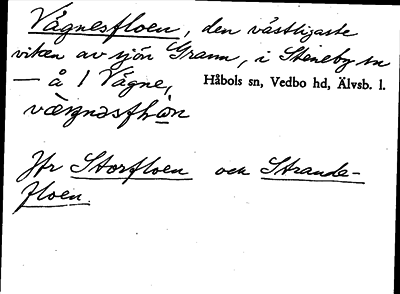 Vågnesfloen, den västligaste
viken av sjön Grann, i Steneby sn
— å l Vågne, Håbols sn, Vedbo hd, Älvsb. l.
Jfr Storfloen och Strande-
floen.